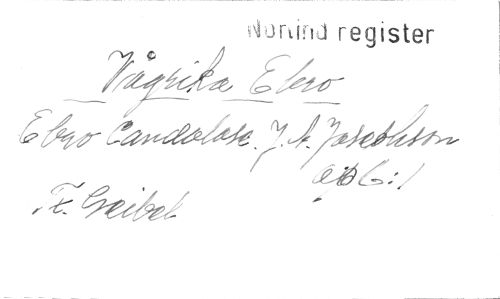 Norlind register
Vågrika Ebro
Ebro Caudalose. J. A. Josephson
op 6:1
F. Geibel